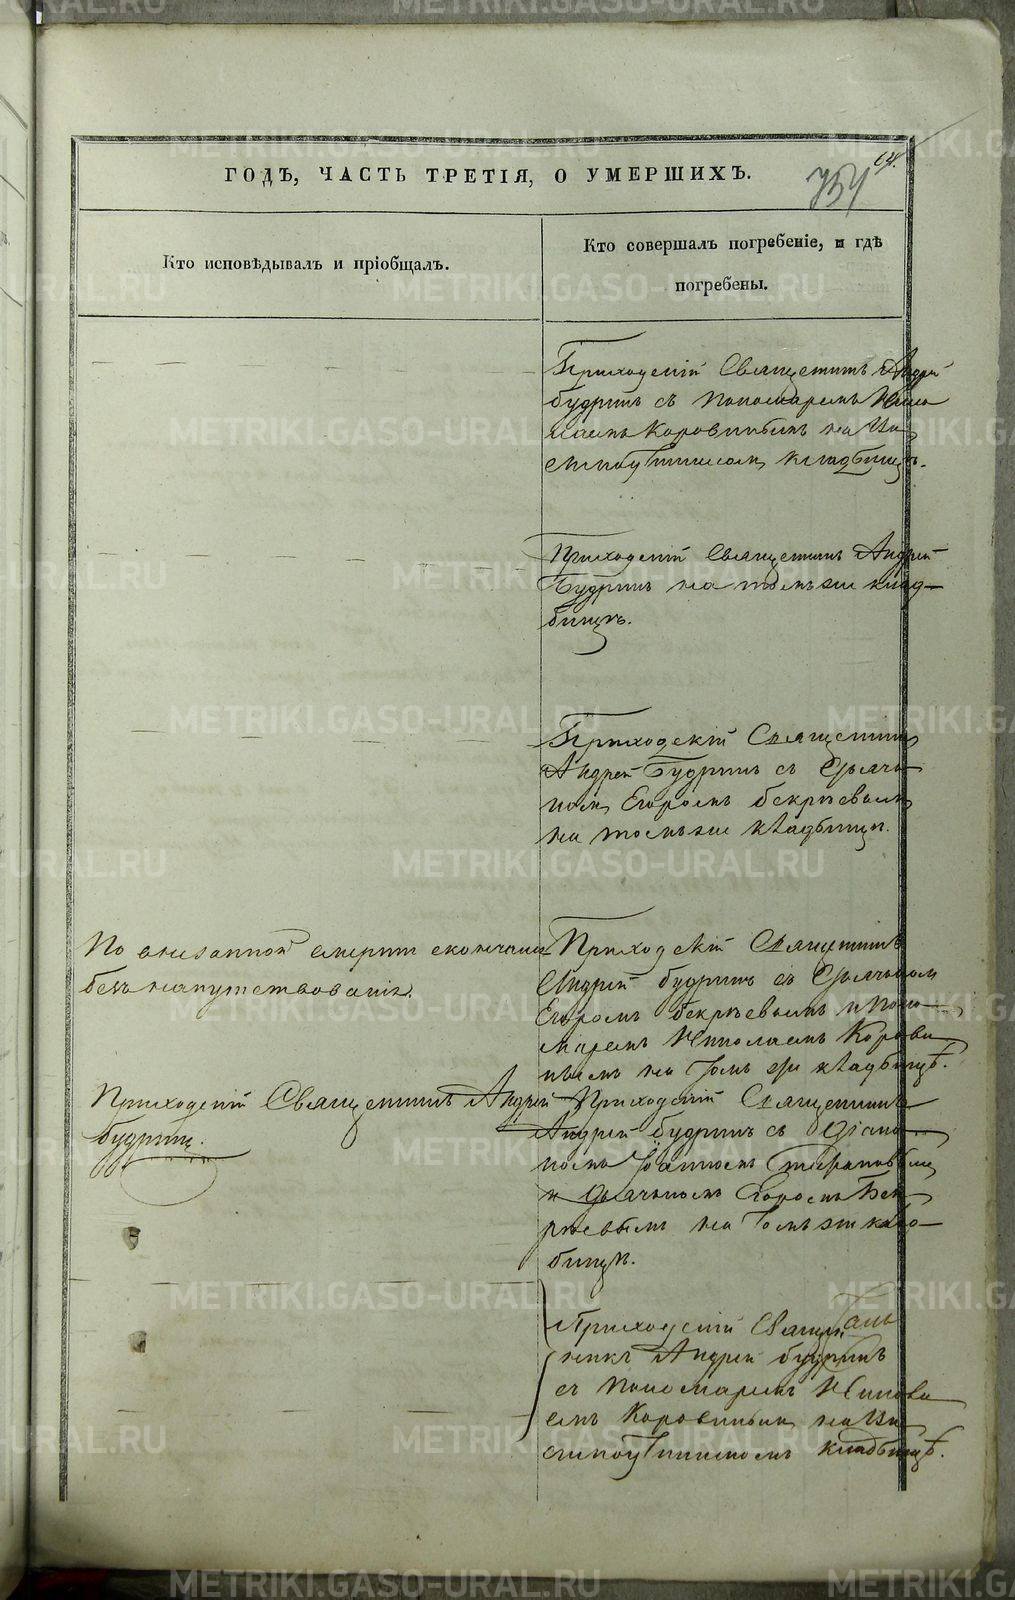 ГОДЪ, ЧАСТЬ ТРЕТІЯ, О УМЕРШИХЪ.
754
Кто исповѣдывалъ и пріобщалъ.
Кто совершалъ погребеніе, и гдѣ
погребены.
Приходскій Священникъ Андрей
Будринъ съ Пономаремъ Нико
лаемъ Коровинымъ на
кладбищѣ.
Приходскій Священникъ Андрей
Будринъ на томъ же клад-
бищѣ.
Приходскій Священникъ
Андрей Будринъ съ Дьячь
комъ Егоромъ Бекрѣевымъ
на томъ же кладбищѣ.
По внезапной смерти скончался
безъ напутствованія.
Приходскій Священникъ
Андрей Будринъ съ Дьячькомъ
Егоромъ Бекрѣевымъ и Поно-
маремъ Николаемъ Корови
нымъ на томъ же кладбищѣ.
Приходскій Священникъ Андрей
Будринъ.
Приходскій Священникъ
Андрей Будринъ съ Діако-
номъ
и Дьячькомъ Егоромъ Бек
рѣевымъ на томъ же клад-
бищѣ.
Приходскій Священ
никъ Андрей Будринъ
съ Пономаремъ Никола
емъ Коровинымъ на
кладбищѣ.
METRIKI.GASO-URAL.RU